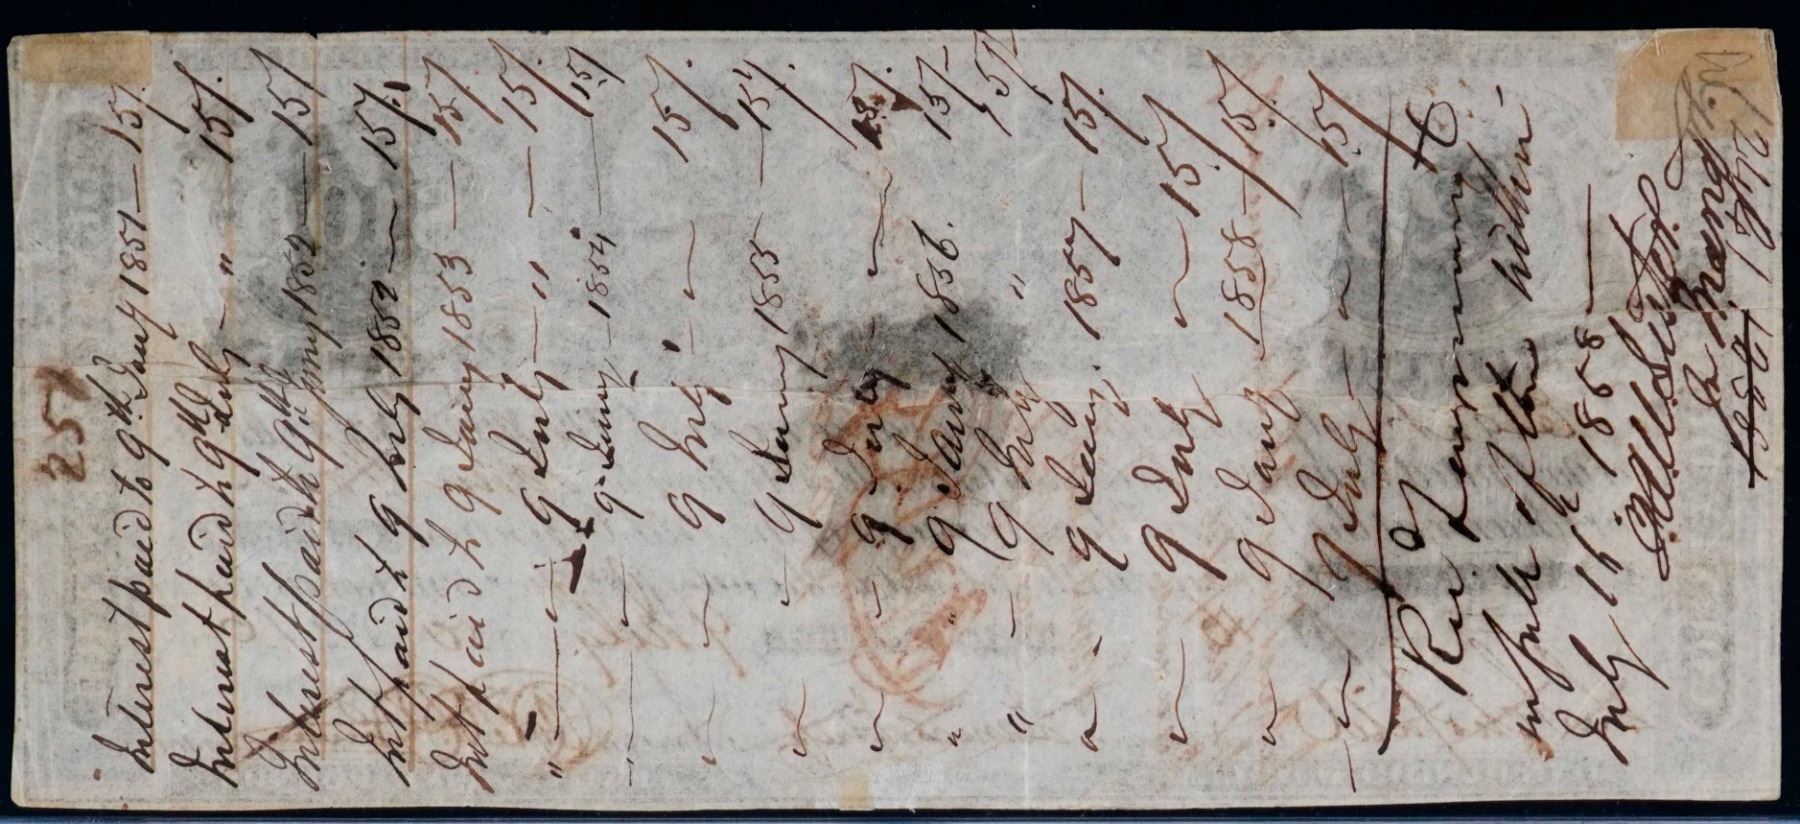 251
Interest paid to 9th Jany 1851 — 15/.
Interest paid to 9th July — " 15/.
Interest paid to 9th Jany 1852 — 15/
Int paid to 9 July 1852 — 15/.
Int paid to 9 Jany 1853 — 15/.
" — 9 July — " — 15/.
— 9 Jany 1854 — 15/
9 July " 15/.
9 Jany 1855 — 15/.
9 July 15/.
" " 9 Jany 1856. 15/-
" — 9 July " 15/-
9 Jany. 1857 — 15/.
9 July 15/.
9 Jany 1858 — 15/.
— 9 July — 15/
in full of the within
July 16th 1858 —